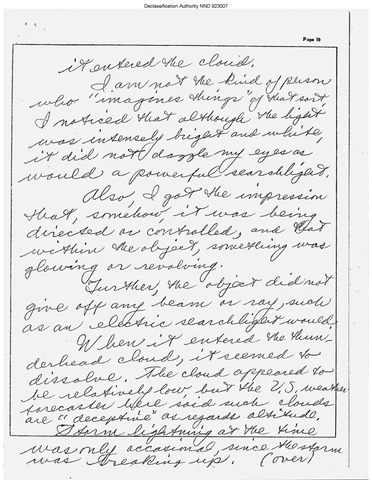 Declassification Authority NND 923007
Page 10
it entered the cloud.
I am not the kind of person
who "imagines things" of that sort.
I noticed that although the light
was intensely bright and white,
it did not dazzle my eyes as
would a powerful searchlight.
Also, I got the impression
that, somehow, it was being
directed or controlled, and that
within the object, something was
glowing or revolving.
Further, the object did not
give off any beam or ray, such
as an electric searchlight would.
When it entered the thun-
derhead cloud, it seemed to
dissolve. The cloud appeared to
be relatively low, but the U.S. weather
forecaster here said such clouds
are "deceptive" as regards altitude.
Storm lightning at the time
was only occasional, since the storm
was breaking up. (over)